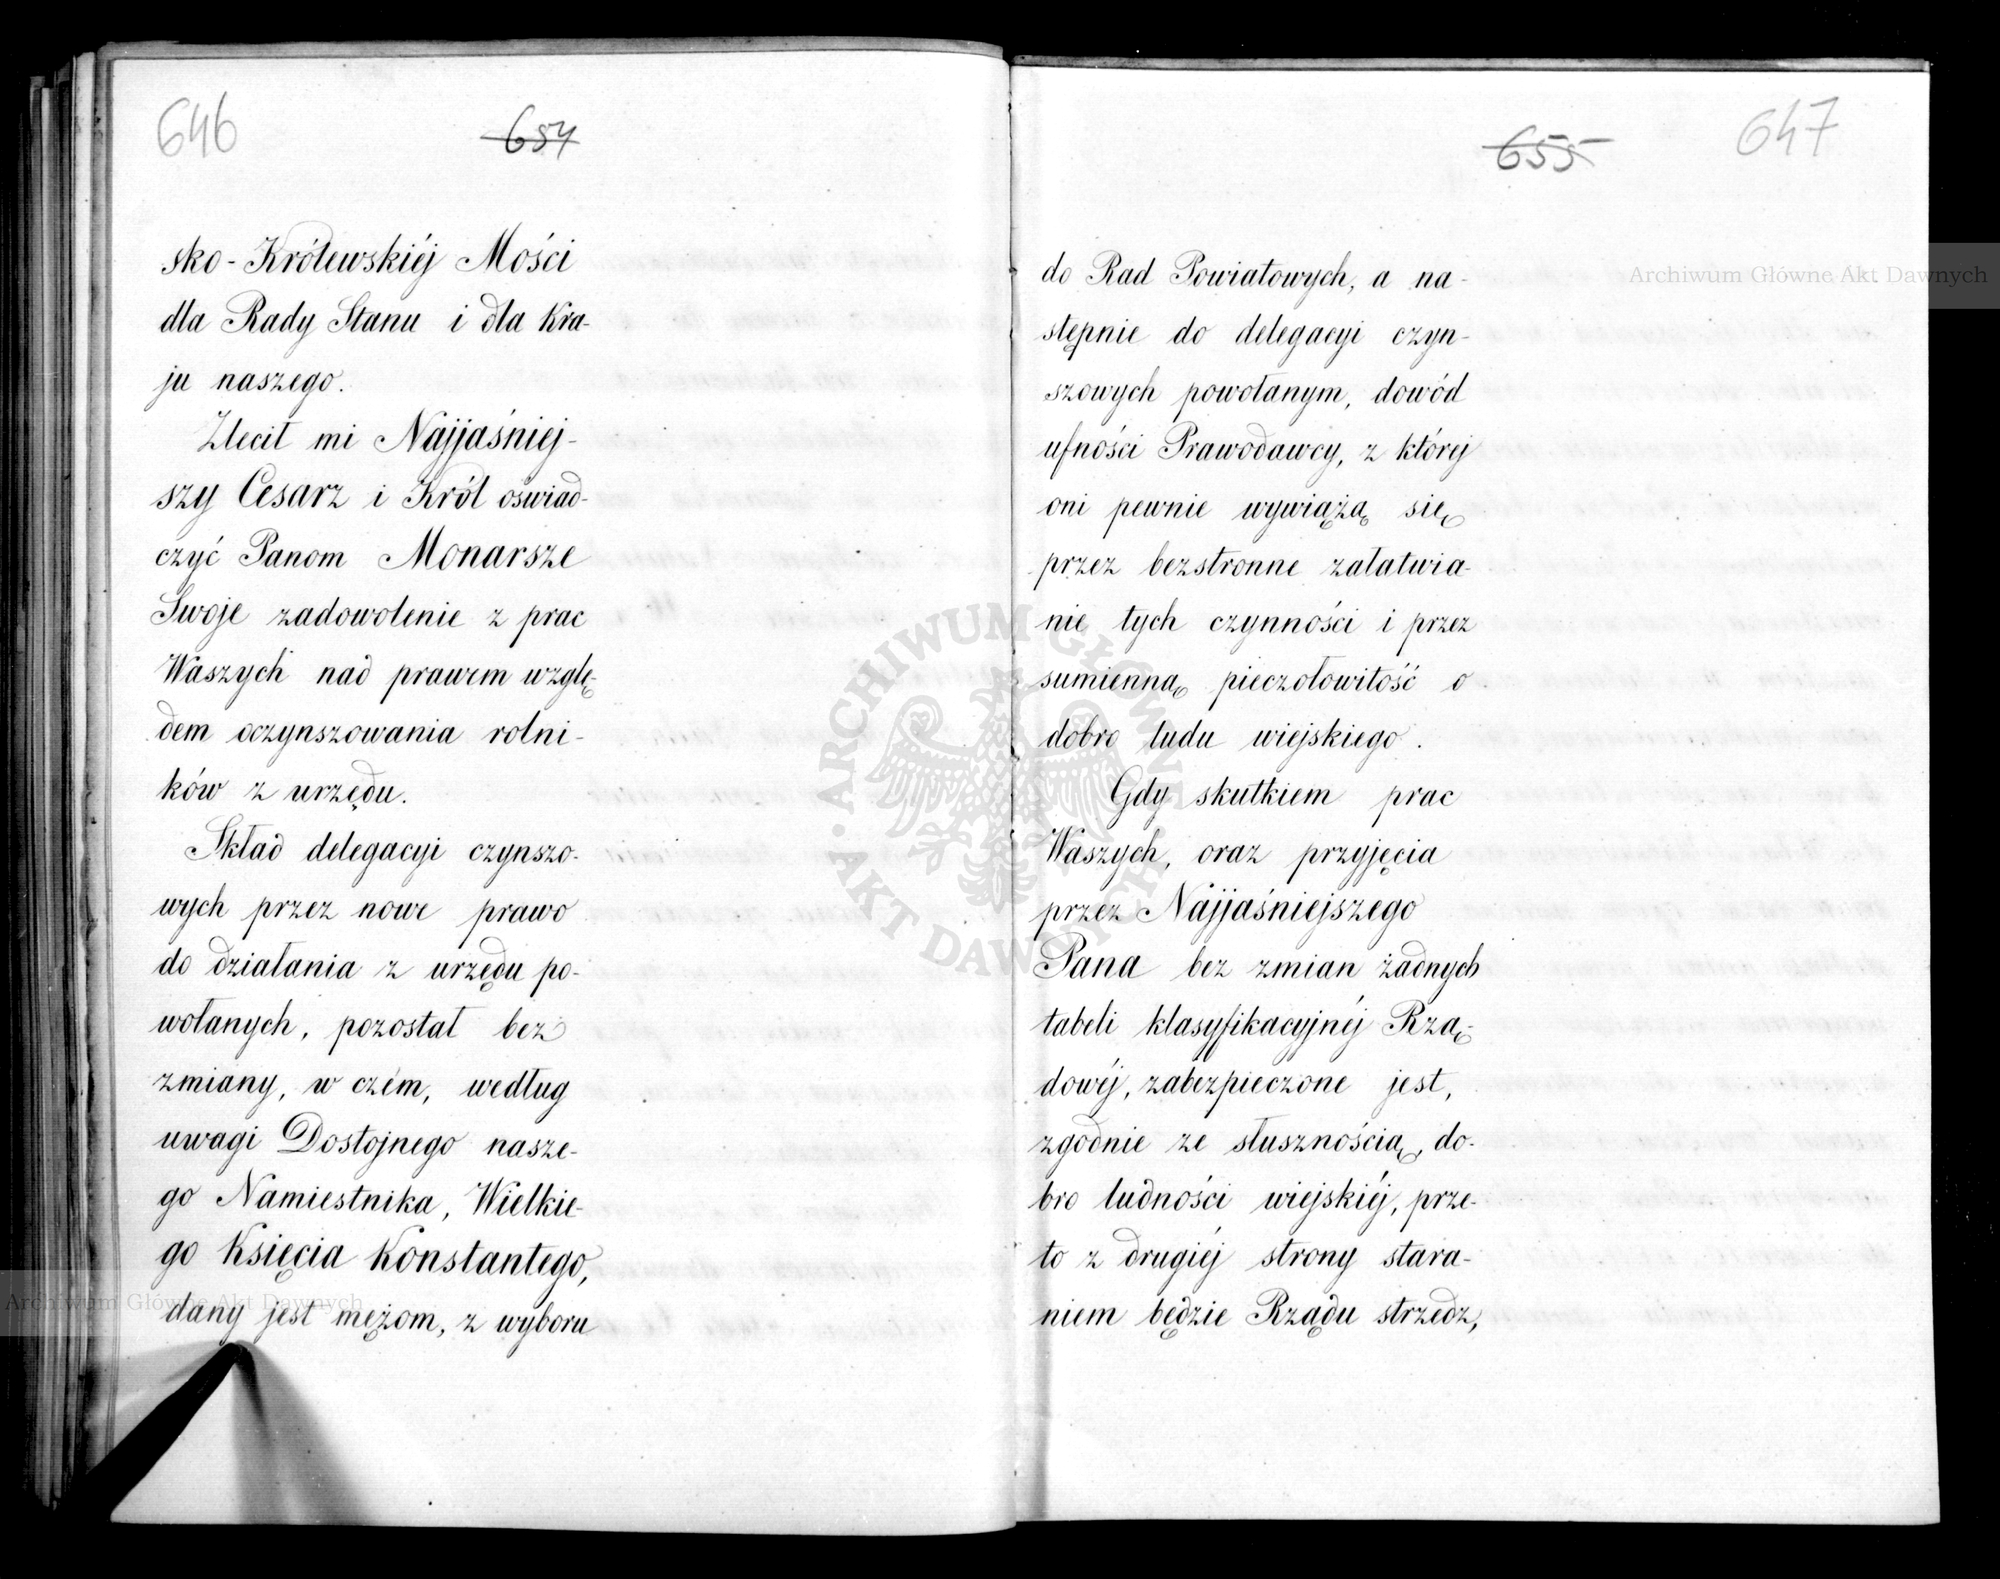 646
654
sko-Królewskiéj Mości
dla Rady Stanu i dla Kra-
ju naszego.
Zlecił mi Najjaśniej-
szy Cesarz i Król oświad-
czyć Panom Monarsze
Swoje zadowolenie z prac
Waszych nad prawem wzglę-
dem oczynszowania rolni-
ków z urzędu.
Skład delegacyi czynszo-
wych przez nowe prawo
do działania z urzędu po-
wołanych, pozostał bez
zmiany, w czém, według
uwagi Dostojnego nasze-
go Namiestnika, Wielkie-
go Księcia Konstantego,
dany jest mężom, z wyboru
647
655
do Rad Powiatowych, a na-
stępnie do delegacyi czyn-
szowych powołanym, dowód
ufności Prawodawcy, z której
oni pewnie wywiążą się
przez bezstronne załatwia-
nie tych czynności i przez
sumienną pieczołowitość o
dobro ludu wiejskiego.
Gdy skutkiem prac
Waszych, oraz przyjęcia
przez Najjaśniejszego
Pana bez zmian żadnych
tabeli klasyfikacyjnéj Rzą-
dowéj, zabezpieczone jest,
zgodnie ze słusznością, do-
bro ludności wiejskiéj, prze-
to z drugiéj strony stara-
niem będzie Rządu strzedz,
Archiwum Główne Akt Dawnych
Archiwum Główne Akt Dawnych
ARCHIWUM GŁÓWNE · AKT DAWNYCH ·